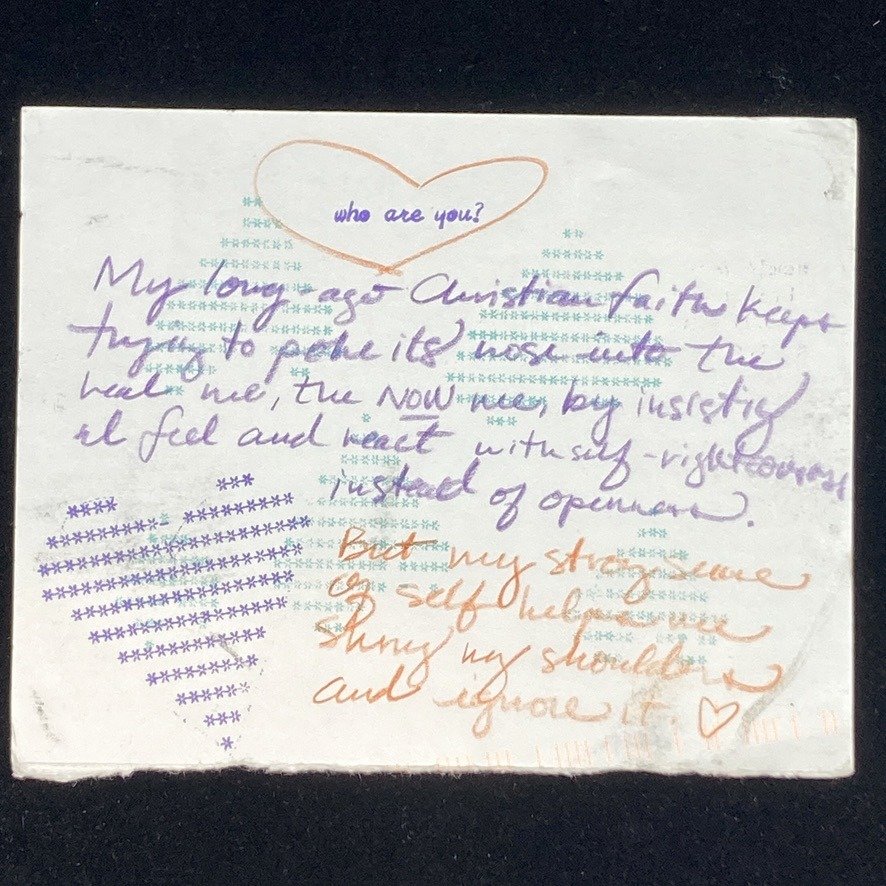 who are you?
My long-ago Christian faith keeps
trying to poke its nose into the
real me, the NOW me, by insisting
I feel and react with self-righteousness
instead of openness.
But my strong sense
of self helps me
shrug my shoulders
and ignore it. ♡